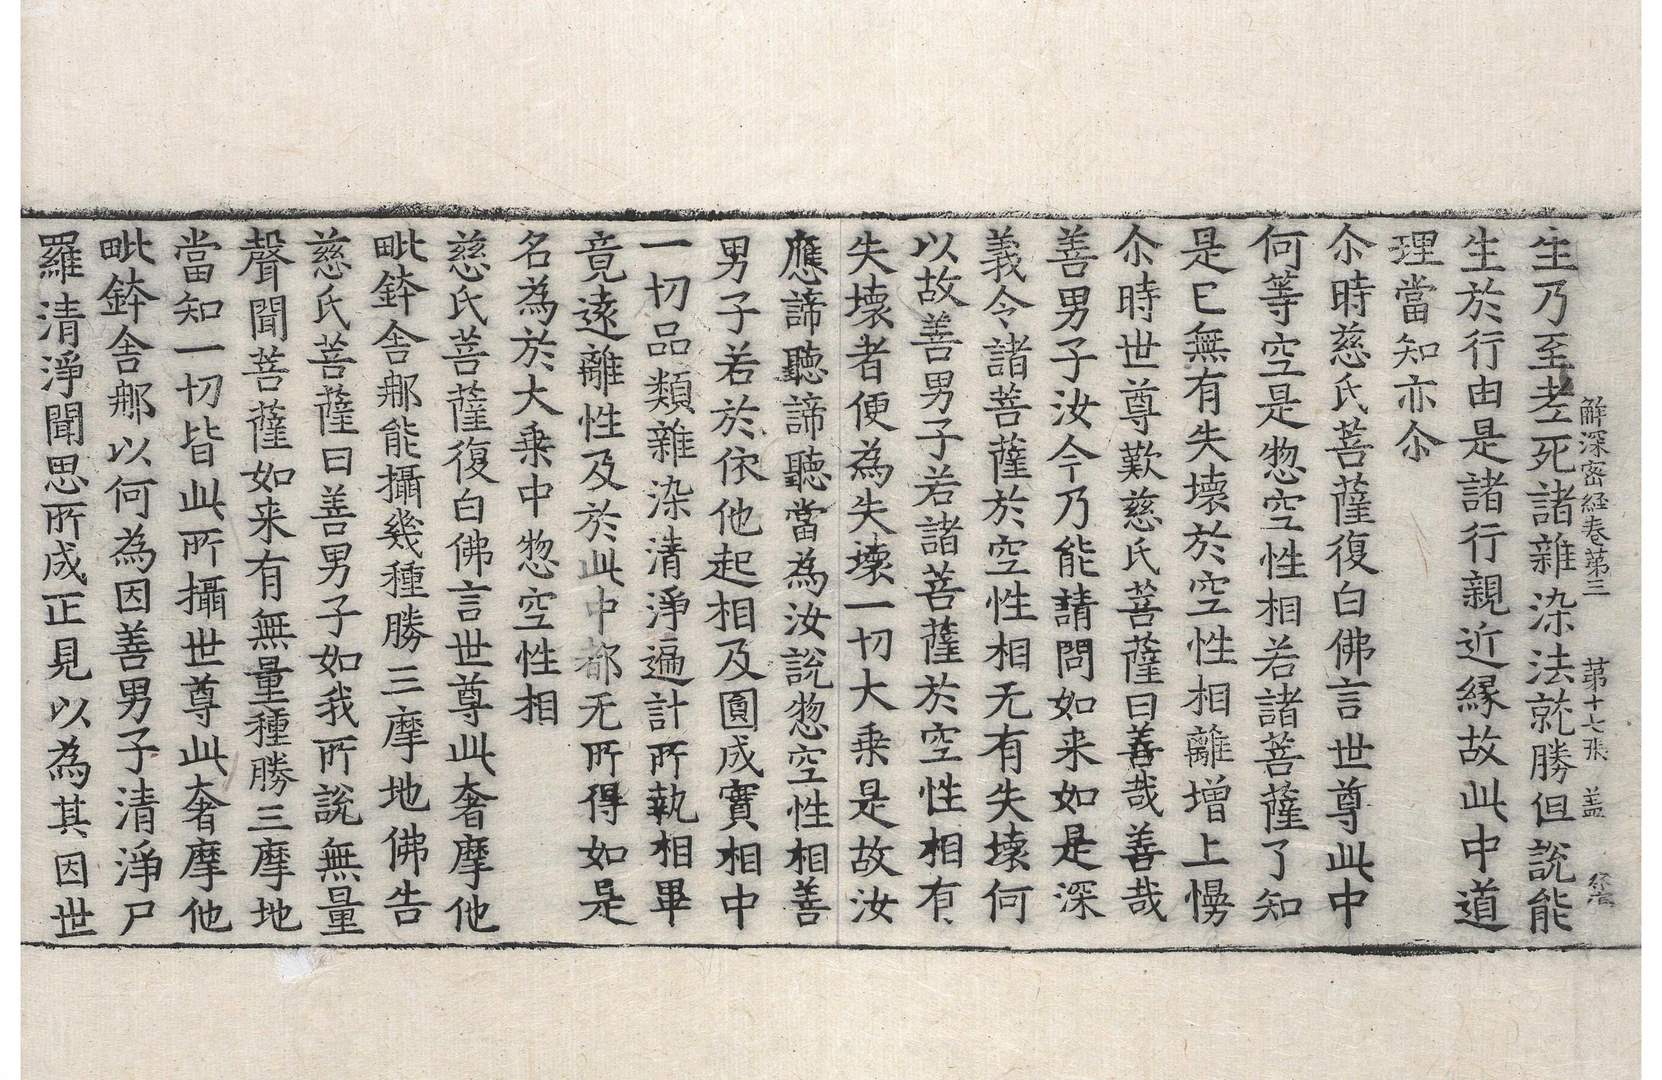 解深密經卷第三 第十七張 盖
生乃至老死諸雜染法就勝但說能
生於行由是諸行親近縁故此中道
理當知亦尒
尒時慈氏菩薩復白佛言世尊此中
何等空是惣空性相若諸菩薩了知
是已無有失壞於空性相離增上慢
尒時世尊歎慈氏菩薩曰善哉善哉
善男子汝今乃能請問如来如是深
義令諸菩薩於空性相无有失壞何
以故善男子若諸菩薩於空性相有
失壞者便為失壞一切大乗是故汝
應諦聽諦聽當為汝說惣空性相善
男子若於依他起相及圓成實相中
一切品類雜染清淨遍計所執相畢
竟遠離性及於此中都无所得如是
名為於大乗中惣空性相
慈氏菩薩復白佛言世尊此奢摩他
毗鉢舍那能攝幾種勝三摩地佛告
慈氏菩薩曰善男子如我所說無量
聲聞菩薩如来有無量種勝三摩地
當知一切皆此所攝世尊此奢摩他
毗鉢舍那以何為因善男子清淨尸
羅清淨聞思所成正見以為其因世